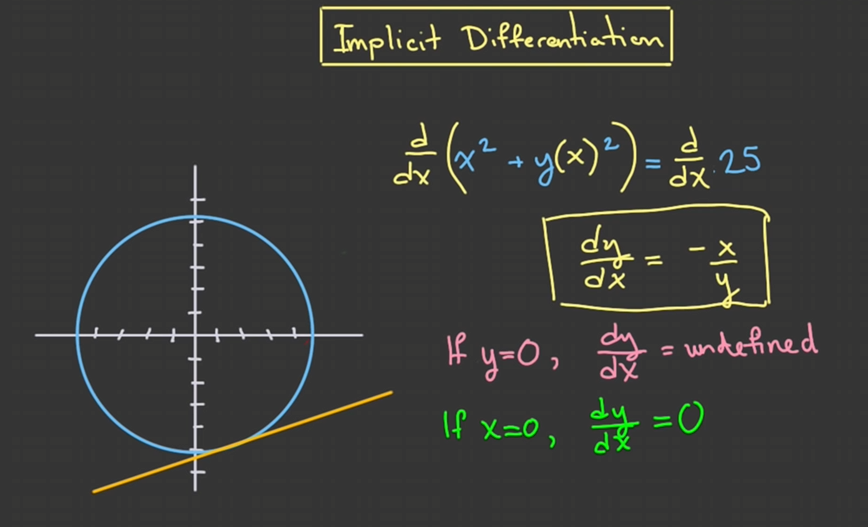 Implicit Differentiation
d/dx (x² + y(x)²) = d/dx . 25
dy/dx = -x/y
If y=0, dy/dx = undefined
If x=0, dy/dx = 0